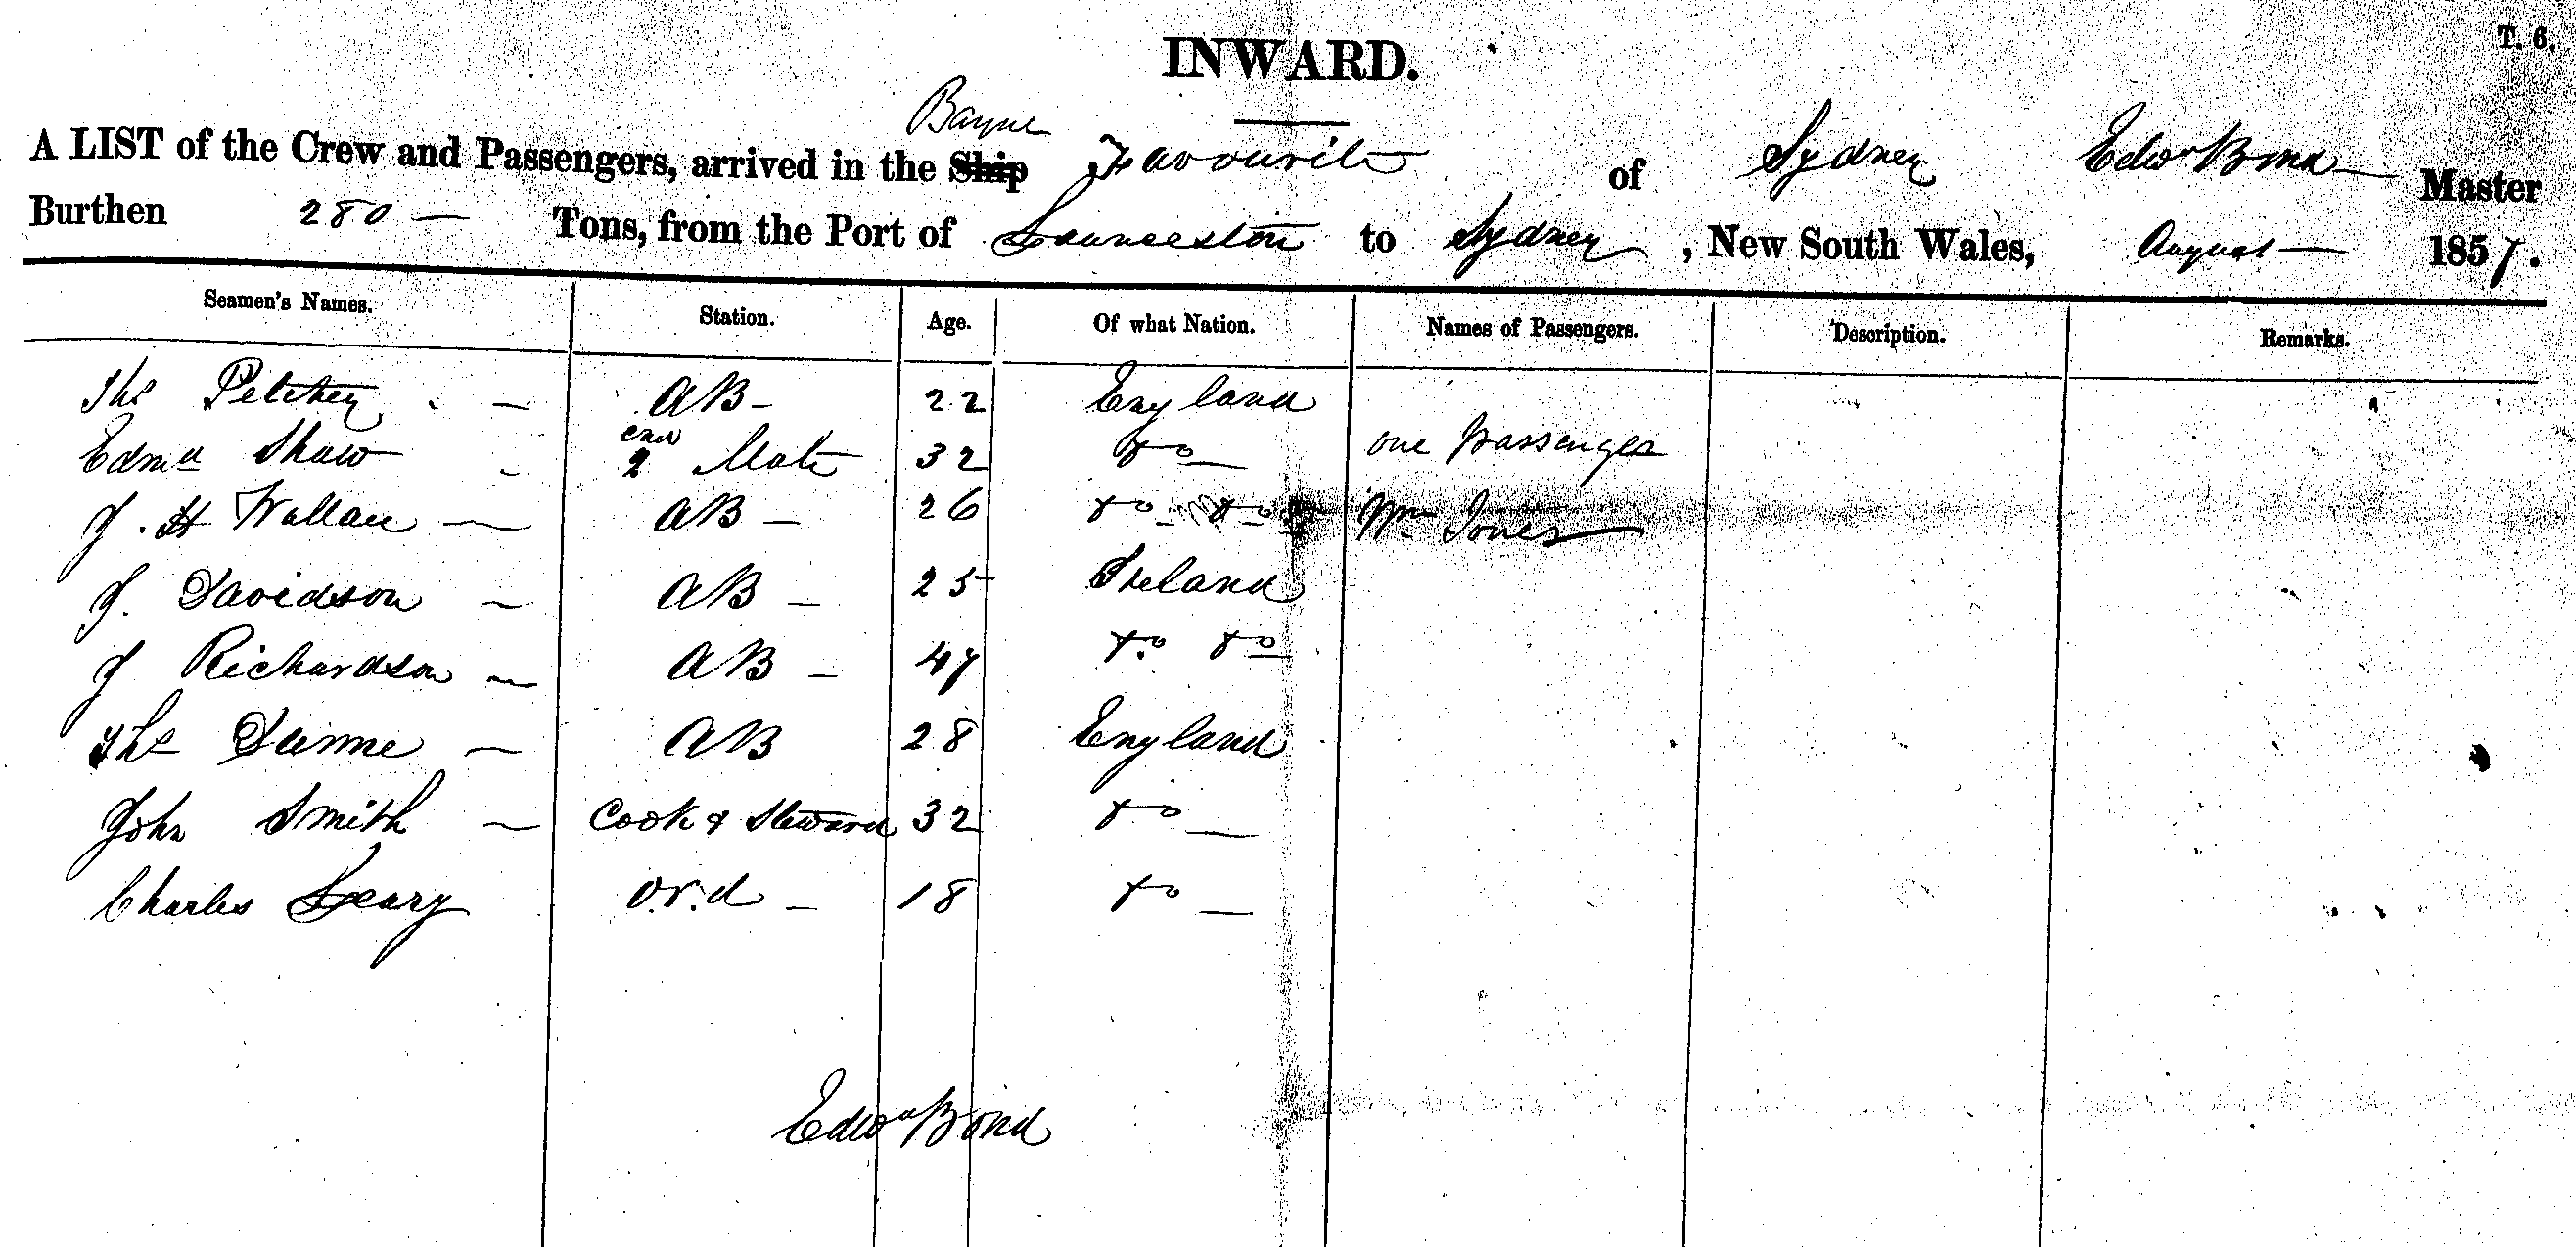 INWARD.
T. 6.
Barque
A LIST of the Crew and Passengers, arrived in the Ship Favourite of Sydney Edwd Bond Master
Burthen 280 Tons, from the Port of Launceston to Sydney, New South Wales, August 1857.
Seamen's Names. Station. Age. Of what Nation. Names of Passengers. Description. Remarks.
Ths Petchey AB 22 England
Edmd Shaw 2 Mate 32 Do one Passenger
J. H Wallace AB 26 Do Do Wm Jones
J. Davidson AB 25 Ireland
J Richardson AB 47 Do Do
Ths AB 28 England
John Smith Cook & Steward 32 Do
Charles Leary Ord 18 Do
Edwd Bond